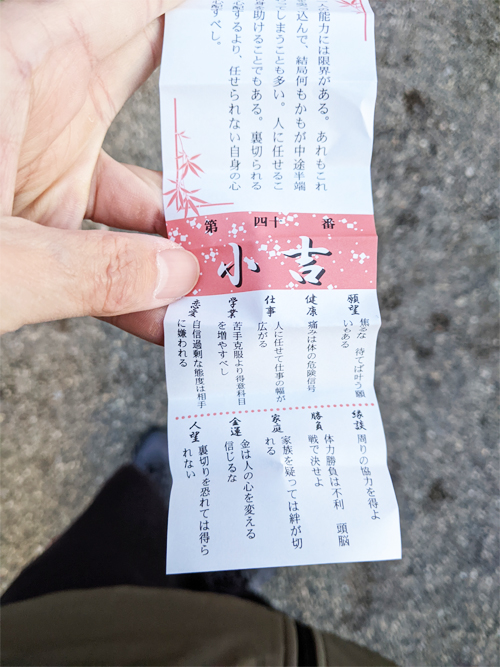 能力には限界がある。あれもこれ
込んで、結局何もかもが中途半端
てしまうことも多い。人に任せるこ
助けることでもある。裏切られる
するより、任せられない自身の心
すべし。
第四十番
小吉
願望
焦るな 待てば叶う願
いもある
健康
痛みは体の危険信号
仕事
人に任せて仕事の幅が
広がる
学業
苦手克服より得意科目
を増やすべし
恋愛
自信過剰な態度は相手
に嫌われる
縁談
周りの協力を得よ
勝負
体力勝負は不利 頭脳
戦で決せよ
家庭
家族を疑っては絆が切
れる
金運
金は人の心を変える
信じるな
人望
裏切りを恐れては得ら
れない